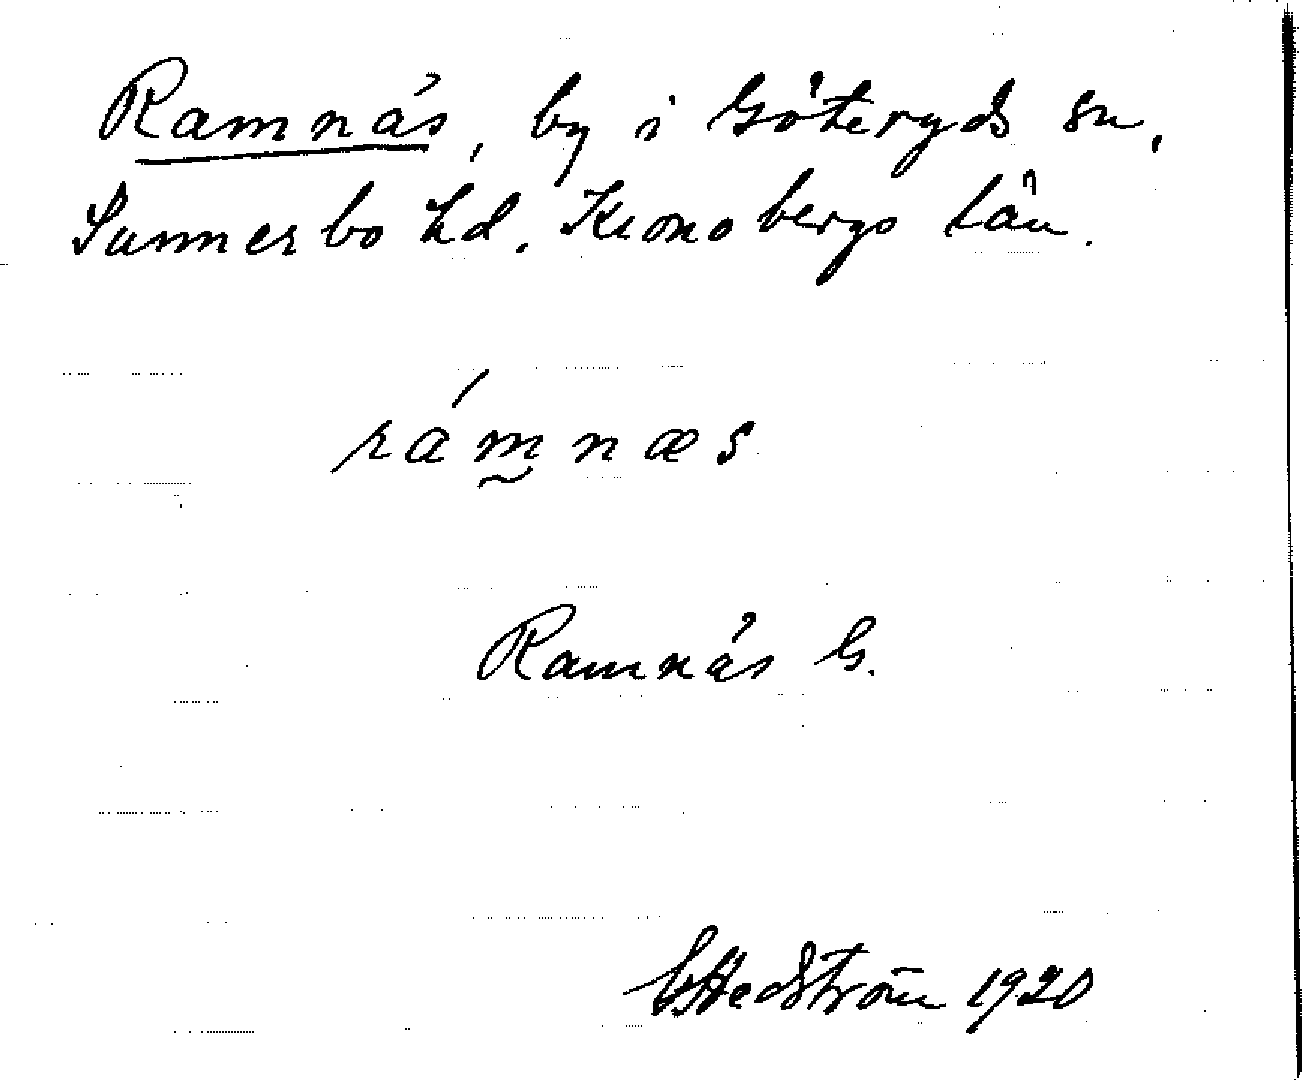 Ramnäs, by i Göteryds sn,
Sunnerbo hd. Kronobergs län.
rámnæs
Ramnäs G.
GHedström 1920